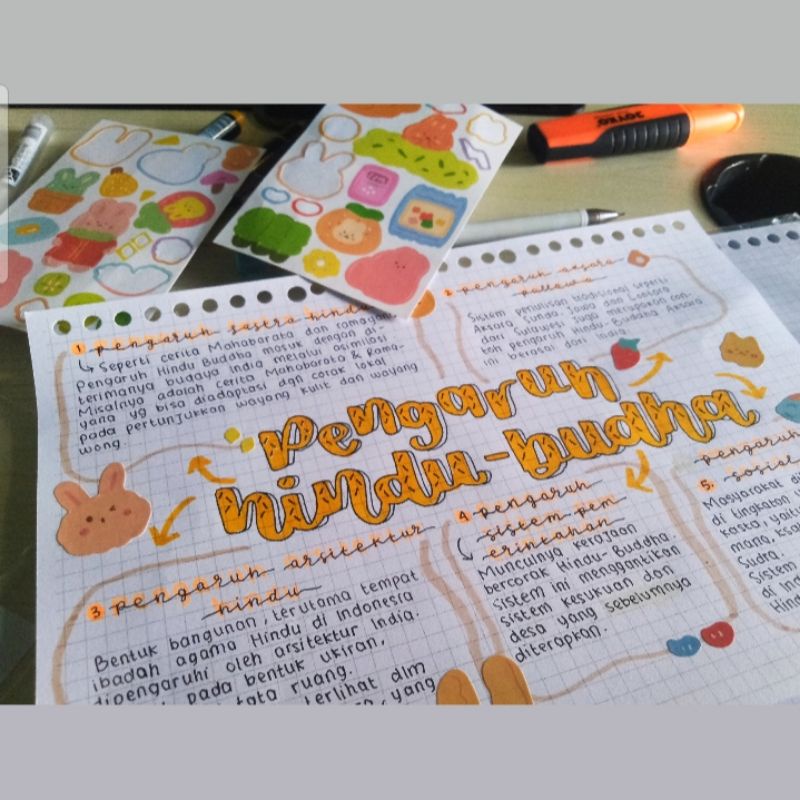 JOYKO
1 pengaruh sastra hindu
↳ Seperti cerita Mahabarata dan ramayana
Pengaruh Hindu Buddha masuk dengan di-
terimanya budaya India melalui asimilasi.
Misalnya adalah cerita Mahabarata & Rama-
yana yg bisa diadaptasi dgn corak lokal
pada pertunjukkan wayang kulit dan wayang
wong.
2 pengaruh aksara
pallawa
Sistem penulisan tradisional seperti
Aksara Sunda, Jawa dan Lontara
dari Sulawesi juga merupakan con-
toh pengaruh Hindu-Buddha. Aksara
ini berasal dari India.
pengaruh
hindu-budha
3 pengaruh arsitektur
hindu
Bentuk bangunan, terutama tempat
ibadah agama Hindu di Indonesia
dipengaruhi oleh arsitektur India.
pada bentuk ukiran,
tata ruang.
terlihat dlm
yang
4 pengaruh
sistem pem
erintahan
Munculnya kerajaan
bercorak Hindu-Buddha.
sistem ini menggantikan
sistem kesukuan dan
desa yang sebelumnya
diterapkan.
pengaruh
5. sosial
Masyarakat di
di tingkatan
kasta, yaitu
mana, ksa
Sudra.
Sistem
di Ind
Hind